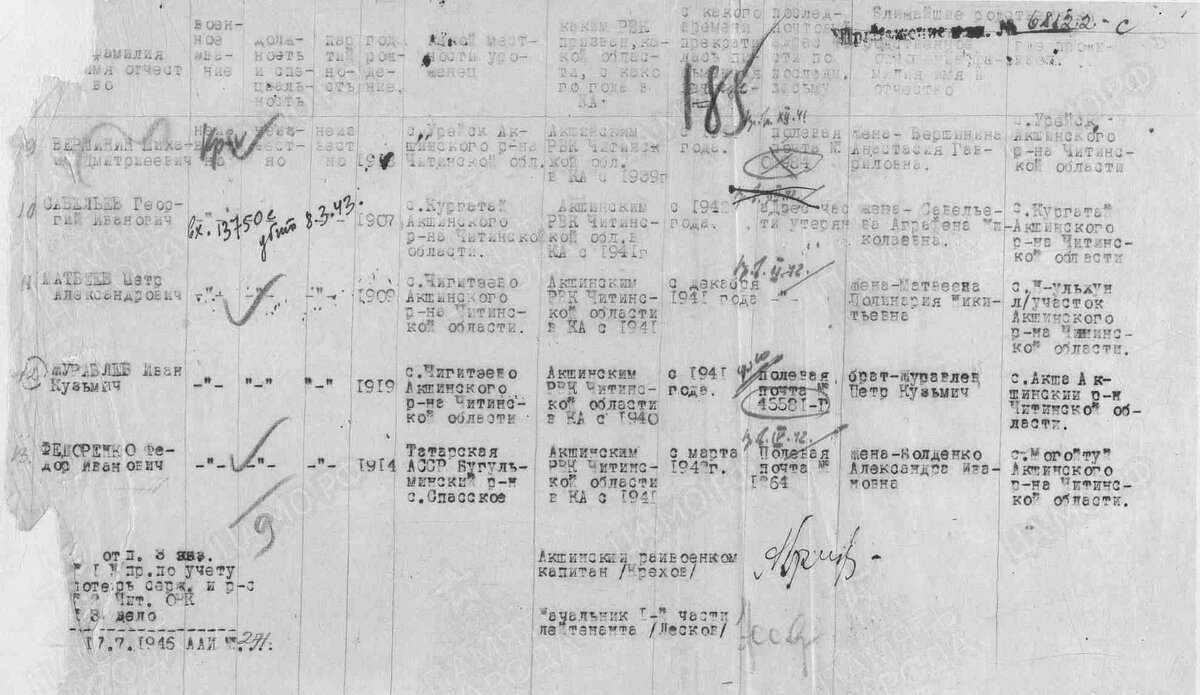 Приложение к вх. № 68122-с
185
Фамилия имя отчество
военное звание
должность и специальность
партийность
год рождения
какой местности уроженец
каким РВК призван, какой области, с какого года в КА
с какого времени прекратилась письменная связь
последний почтовый адрес по последн. письму
Ближайшие родственники
отчество
9 ВЕРШИНИН Михаил Дмитриевич
неизвестно
с.Урейск Акшинского р-на Читинской обл.
Акшинским РВК Читинской обл. в КА с 1939г
года.
полевая почта №
жена- Вершинина Анастасия Гавриловна.
с.Урейск Акшинского р-на Читинской области
10 САВЕЛЬЕВ Георгий Иванович
-"-
Вх. 13750с убит 8.3.43.
1907
с.Кургатай Акшинского р-на Читинской области.
Акшинским РВК Читинской обл.в КА с 1941г
с 1942
адрес части утерян
жена- Савельева Аграфена Николаевна.
с.Кургатай Акшинского р-на Читинской области
11 МАТВЕЕВ Петр Александрович
-"- -"-
1909
с.Чигитаево Акшинского р-на Читинской области.
Акшинским РВК Читинской области в КА с 1941
с декабря 1941 года
-"-
жена-Матвеева Полинария Никитьевна
с.Н-ульхун л/участок Акшинского р-на Чининской области.
12 ЖУРАВЛЕВ Иван Кузьмич
-"- -"- -"-
1919
с.Чигитаево Акшинского р-на Читинской области
Акшинским РВК Читинской области в КА с 1940
с 1941 года.
полевая почта № 45581-Г
брат-журавлев Петр Кузьмич
с.Акша Акшинский р-н Читинской области.
13. ФЕДОРЕНКО Федор иванович
-"- -"- -"-
1914
Татарская АССР Бугульминский р-н с.Спасское
Акшинским РВК Читинской области в КА с 1941
с марта 1942г.
Полевая почта № 1264
жена-Колденко Александра Ивановна
с.Могойтуй Акшинского р-на Читинской области.
9
отп. 3 экз.
" 1 Упр.по учету
потерь серж. и р-с
" 2 Чит. ОВК
" 3 дело
17.7.1946 ААИ № 291.
Акшинский райвоенком
капитан /Орехов/
Начальник 1-й части
лейтенанта /Лесков/